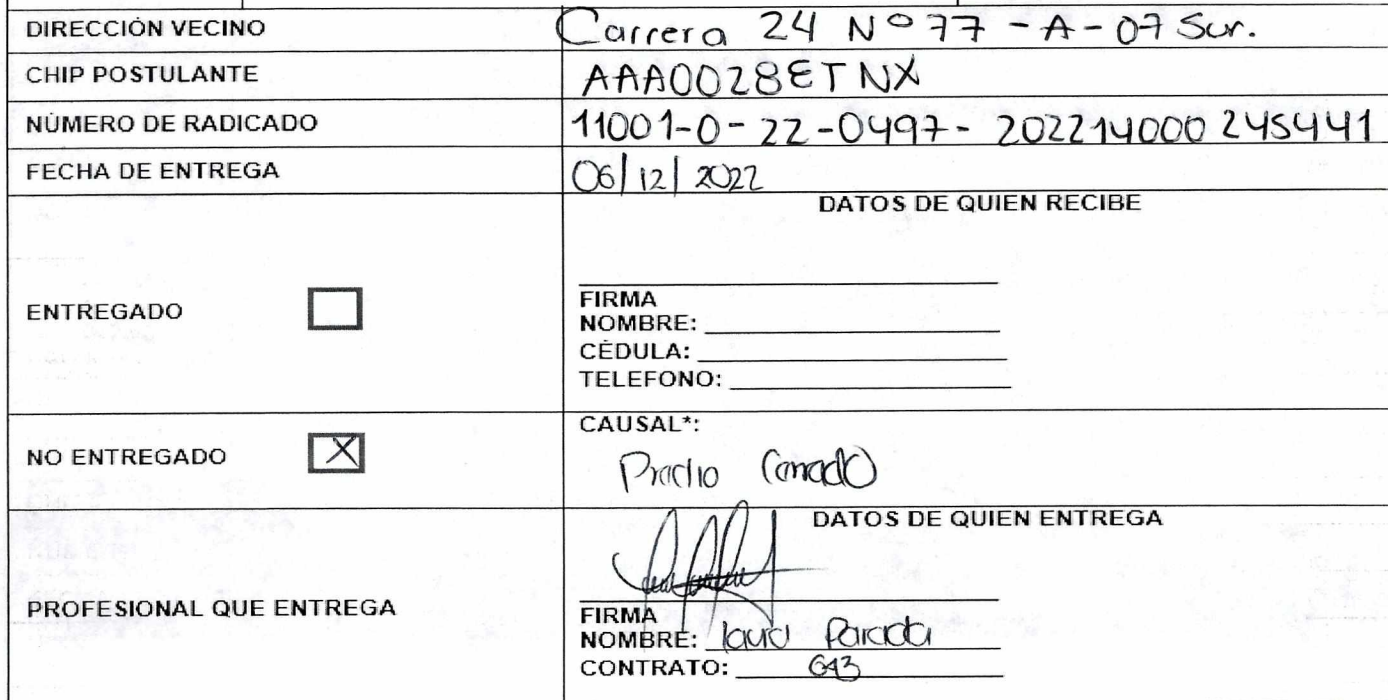 DIRECCIÓN VECINO Carrera 24 Nº 77 - A - 07 Sur.
CHIP POSTULANTE AAA0028ETNX
NÚMERO DE RADICADO 11001-0-22-0497-202214000245441
FECHA DE ENTREGA 06/12/2022
DATOS DE QUIEN RECIBE
ENTREGADO
FIRMA
NOMBRE:
CÉDULA:
TELEFONO:
CAUSAL*:
NO ENTREGADO X
Predio Cerrado
DATOS DE QUIEN ENTREGA
PROFESIONAL QUE ENTREGA
FIRMA
NOMBRE: laura Parada
CONTRATO: 643